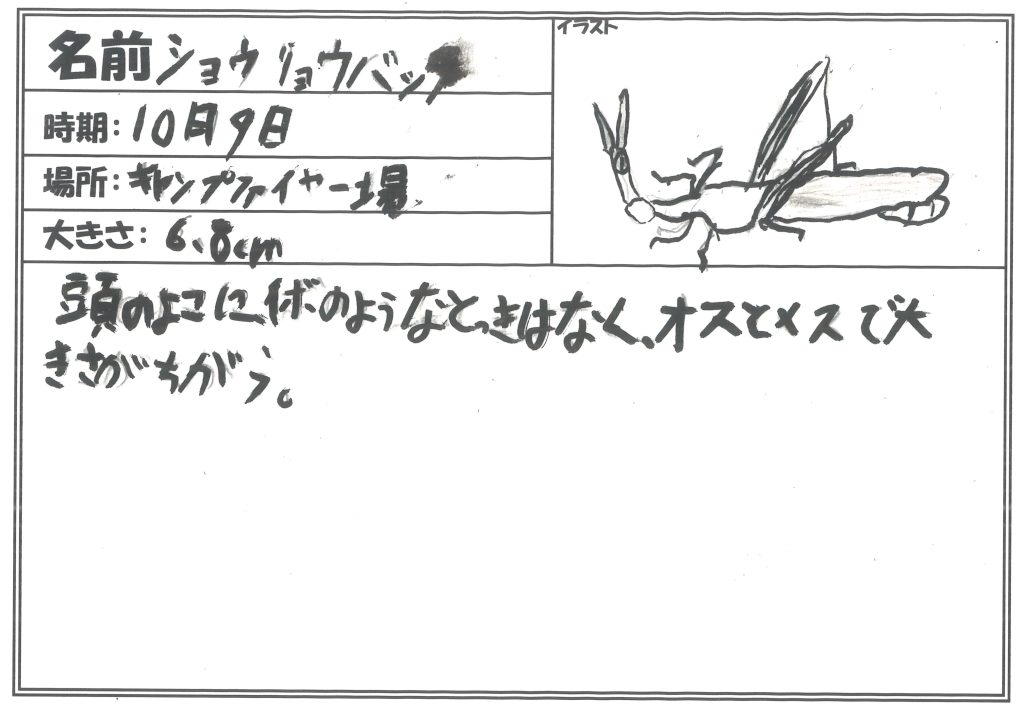 名前 ショウリョウバッタ
イラスト
時期：10月9日
場所：キャンプファイヤー場
大きさ：6.8cm
頭のよこにイボのようなとっきはなく、オスとメスで大
きさがちがう。